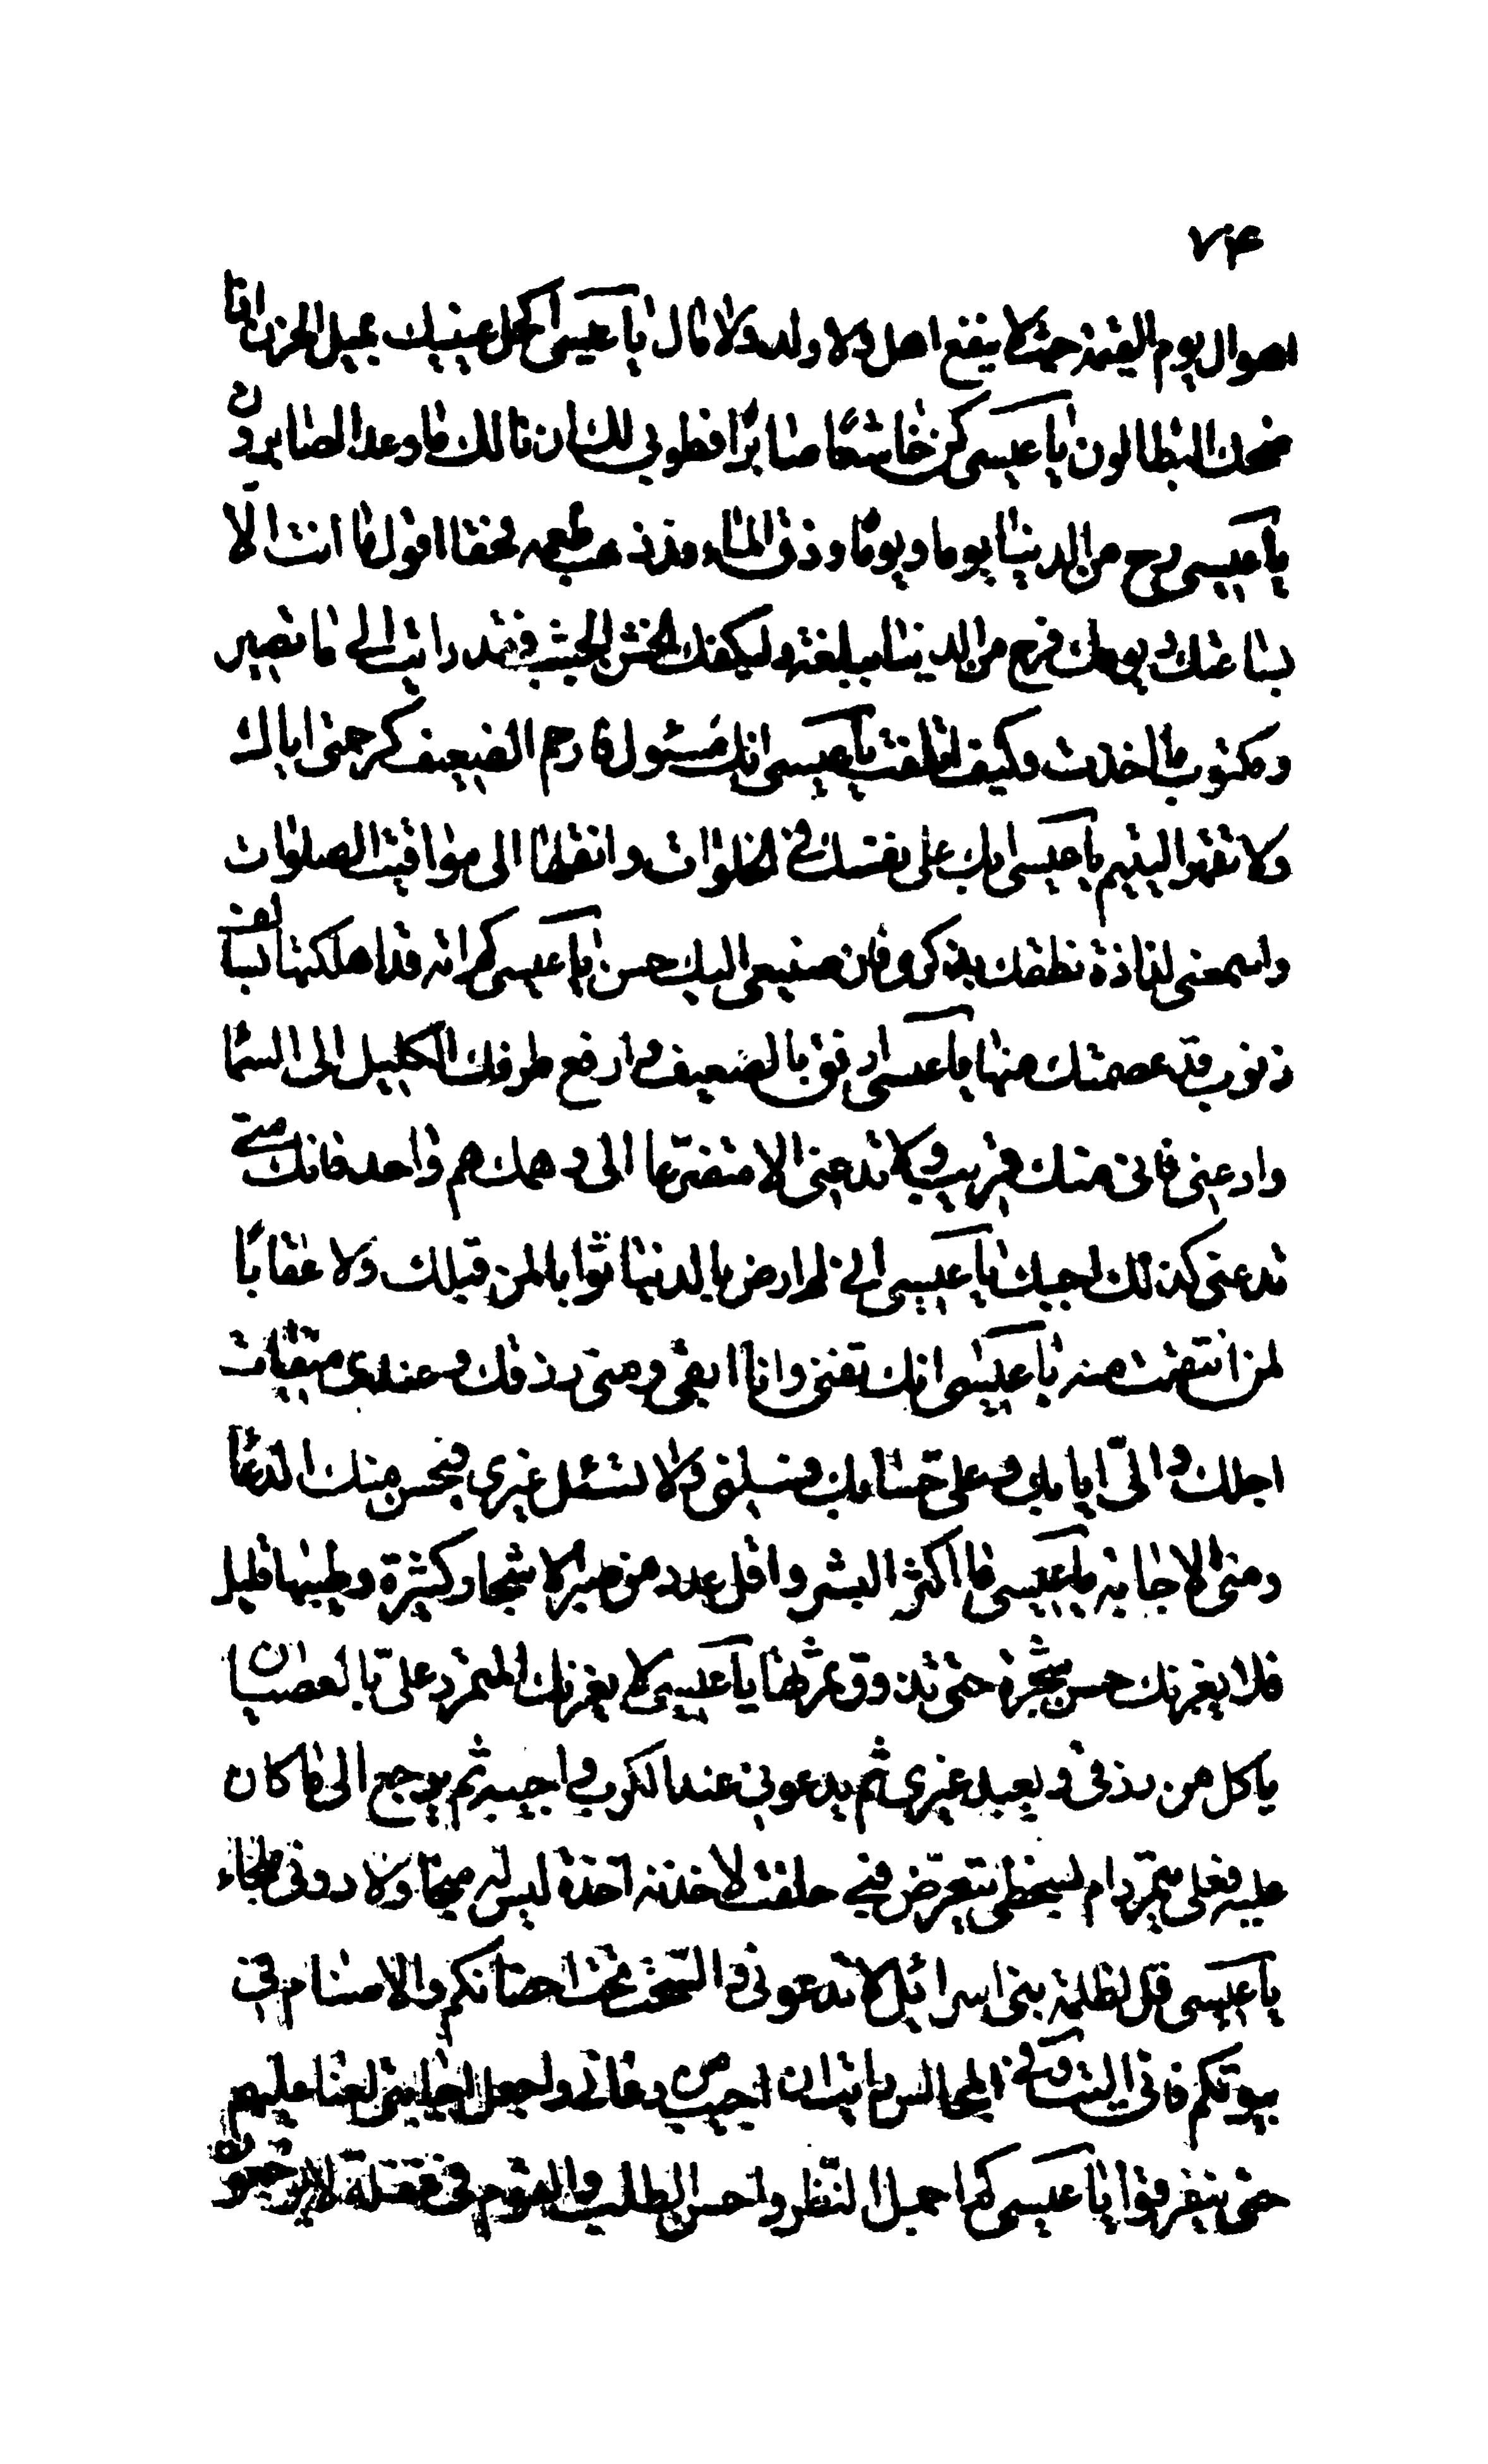 ۷۴
اهوال يوم القيمة حيث لا ينفع اهل ولا ولد ولا مال يا عيسى اكحل عينيك بميل الحزن اذا
ضحك البطالون يا عيسى كن خاشعًا صابرًا فطوبى لك ان نالك ما وعد الصابرون
يا عيسى رح من الدنيا يوما ويومًا وذق لما قد ذهب طعمه فحقا اقول ما انت الّا
بساعتك ويومك فرح من الدنيا ببلغة وليكفك الخشن الجشب فقد رايت الى ما تصير
ومكتوب ما اخذت وكيف اتلفت يا عيسى انك مسئول فارحم الضعيف كرحمتى اياك
ولا تقهر اليتيم يا عيسى ابك على نفسك فى الخلوات وانقل قدميك الى مواقيت الصلوات
واسمعنى لذاذة نطقك بذكرى فان صنيعى اليك حسن يا عيسى كم من امة قد اهلكتها بسالف
ذنوب قد عصمتك منها يا عيسى ارفق بالضعيف وارفع طرفك الكليل الى السما
وادعنى فانى منك قريب ولا تدعنى الا متضرعا الى وهمك هم واحد فانك متى
تدعنى كذلك اجبك يا عيسى انى لم ارض بالدنيا ثوابا لمن قبلك ولا عقابًا
لمن انتقمت منه يا عيسى انك تفنى وانا ابقى ومنى رزقك وعندى ميقات
اجلك والىّ ايابك وعلى حسابك فسلنى ولا تسئل غيرى فيحسن منك الدعا
ومنى الاجابة يا عيسى ما اكثر البشر واقل عدد من صبر الاشجار كثيرة وطيبها قليل
فلا يغرنك حسن شجرة حتى تذوق ثمرتها يا عيسى لا يغرنك المتمرد علىّ بالعصيان
ياكل من رزقى ويعبد غيرى ثم يدعونى عند الكرب فاجيبه ثم يرجع الى ما كان
عليه فعلى يتمرد ام لسخطى يتعرض فبى حلفت لاخذنه اخذة ليس له منجا ولا دونى ملجاء
يا عيسى قل لظلمة بنى اسرائيل لا تدعونى والسحت تحت احضانكم والاصنام فى
بيوتكم فانى اليت ان اجيب من دعانى وان اجعل اجابتى لعنا عليهم
حتى يتفرقوا يا عيسى كم اجمل النظر واحسن الطلب والقوم فى غفلة لا يرجعون